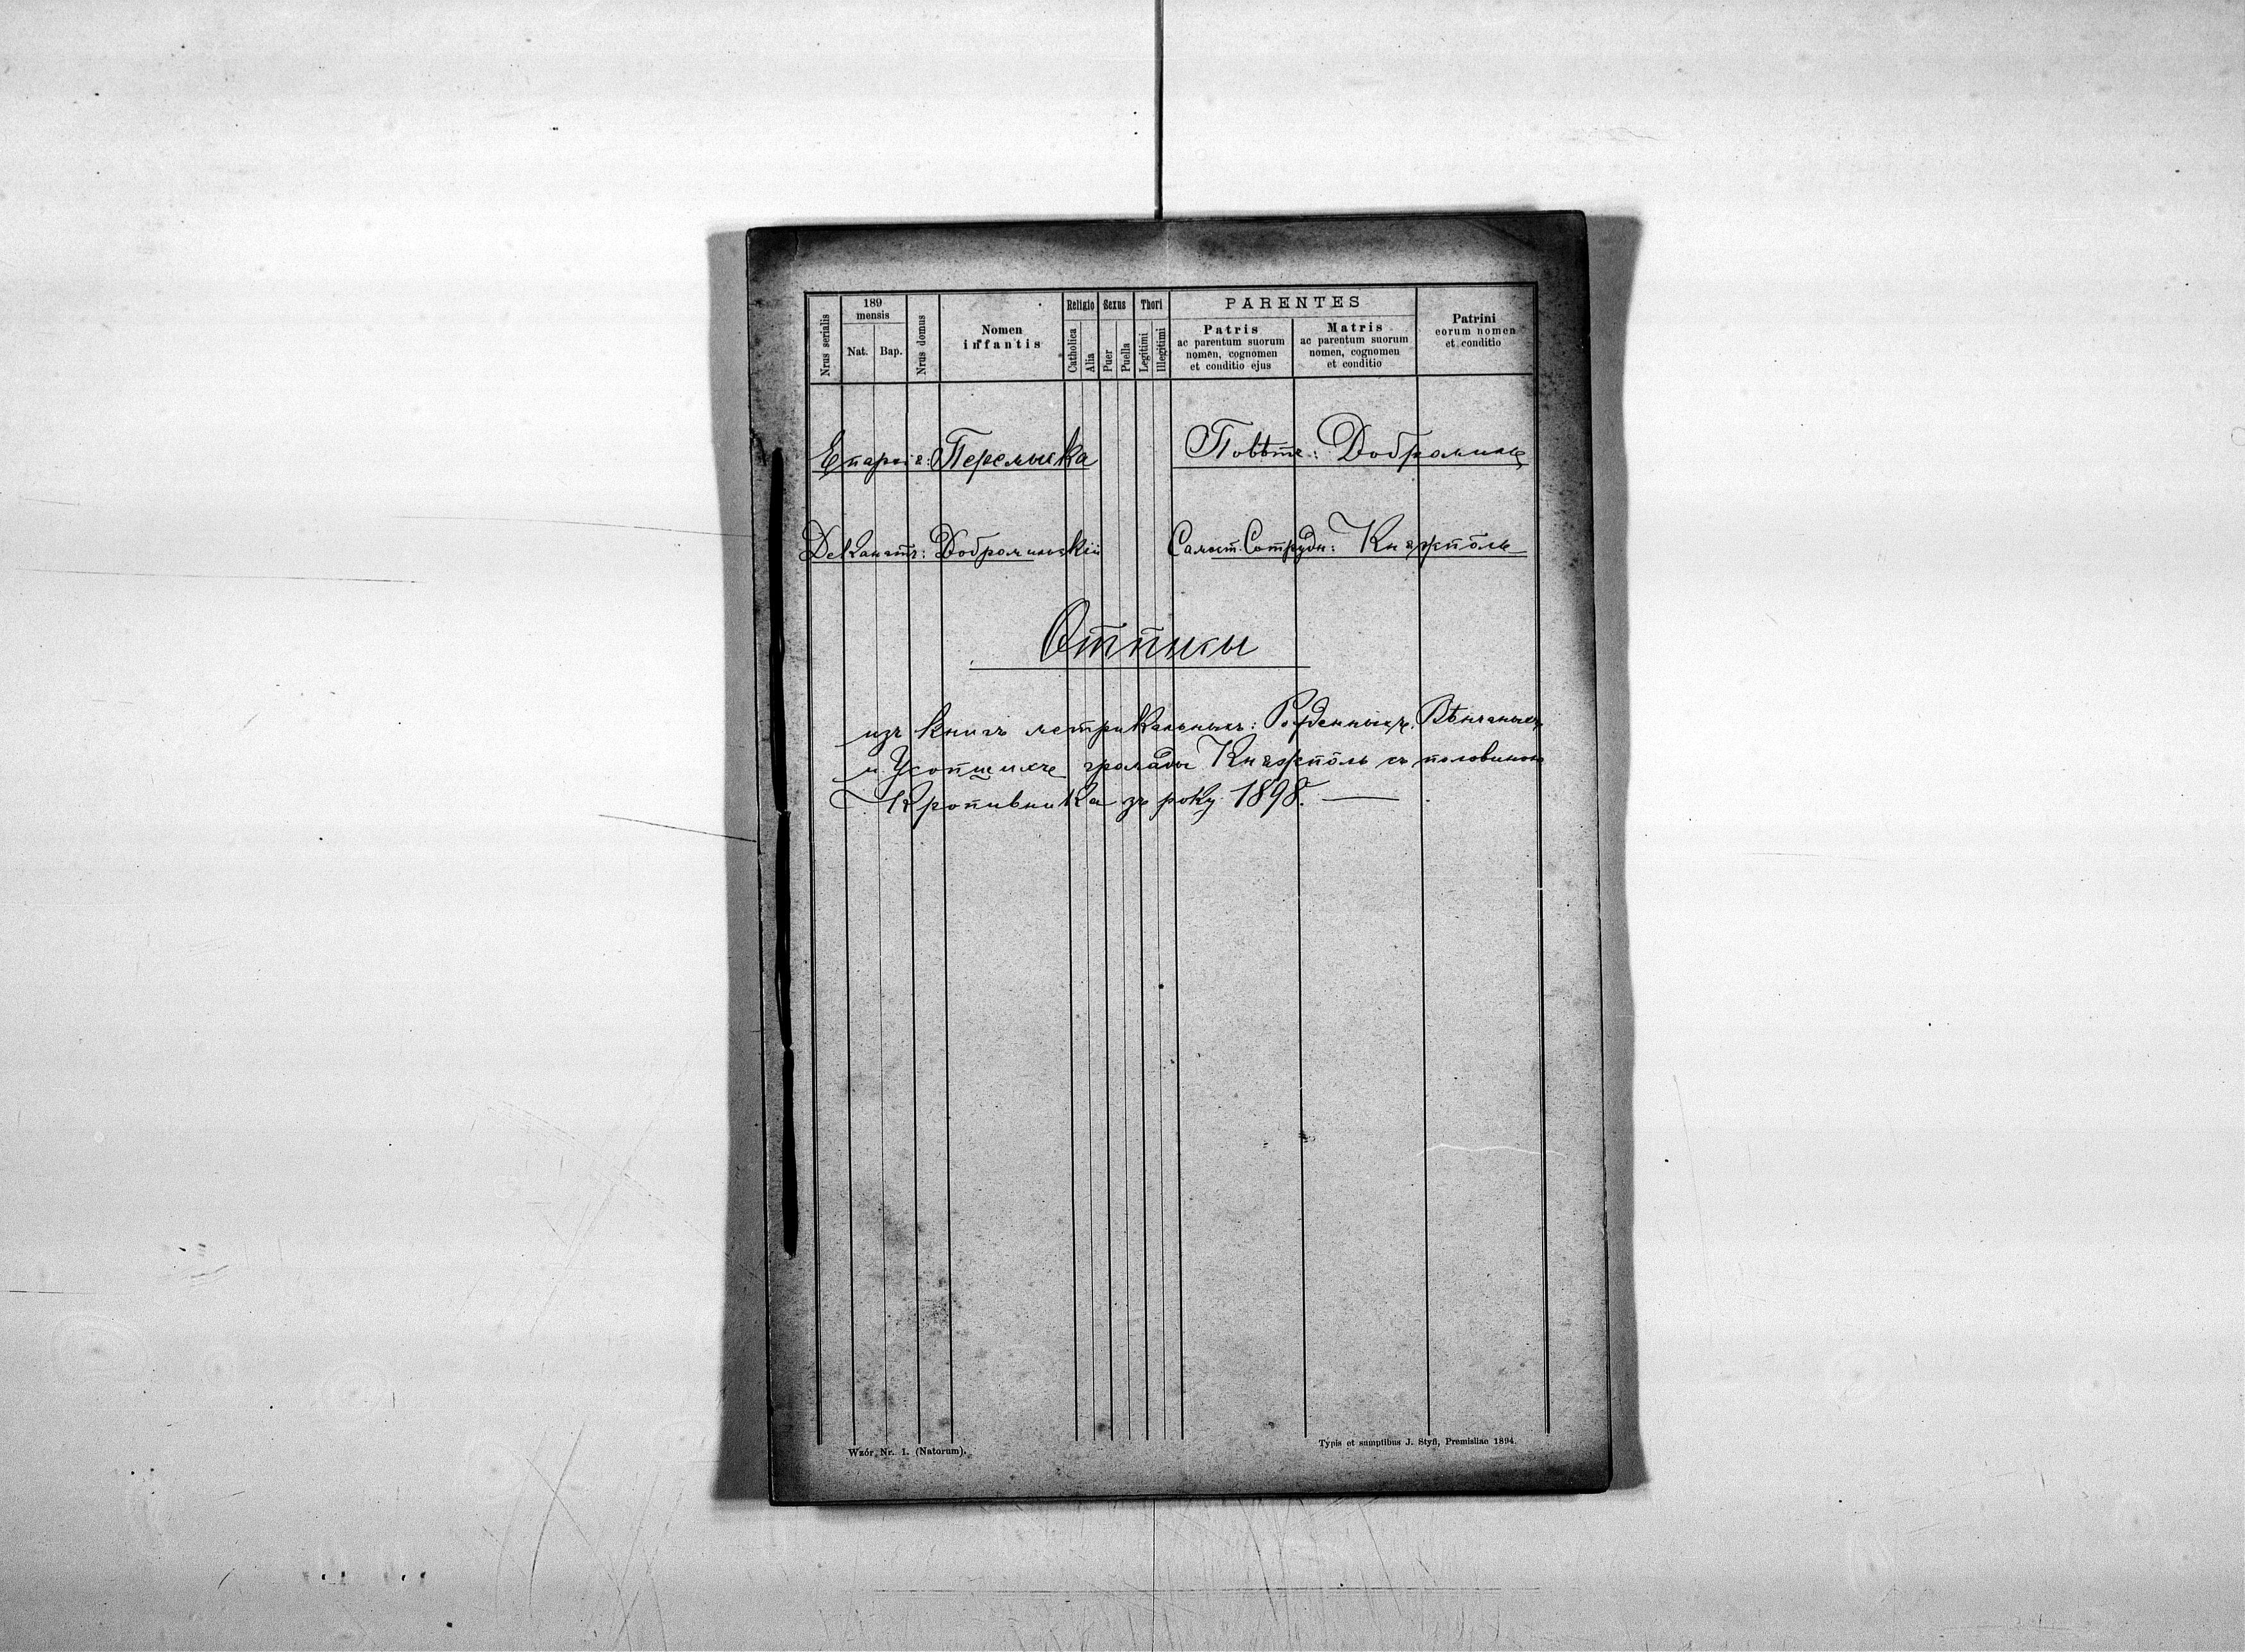 Nrus serialis 189 mensis Nat. Bap. Nrus domus Nomen infantis Religio Catholica Alia Sexus Puer Puella Thori Legitimi Illegitimi
PARENTES
Patris ac parentum suorum nomen, cognomen et conditio ejus
Matris ac parentum suorum nomen, cognomen et conditio
Patrini eorum nomen et conditio
Епархія: Перемыска Повѣтъ: Добромиль
Деканатъ: Добромильскій Самост. Сотрудн: Княжпôль
Отписы
изъ книгъ метрикальныхъ: Рожденныхъ, Вѣнчаныхъ
и Усопшихъ громады Княжпôль съ половиною
Кропивника зъ року 1898.
Wzór Nr. 1. (Natorum). Typis et sumptibus J. Styfi, Premisliae 1894.